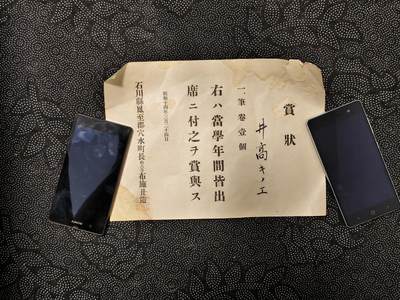 賞狀
井高キノエ
一筆卷壹個
右ハ當學年間皆出
席ニ付之ヲ賞與ス
昭和十四年三月二十四日
石川縣鳳至郡穴水町長 布施